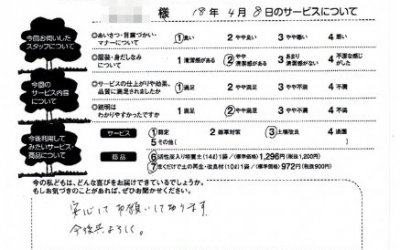 様 18年4月8日のサービスについて
今回お伺いした
スタッフについて
◎あいさつ・言葉づかい・
マナーについて
1 良い 2 やや良い 3 やや悪い 4 悪い
◎服装・身だしなみ
について
1 清潔感がある 2 やや
清潔感がある 3 あまり
清潔感がない 4 不潔な感じ
がした
今回の
サービス内容
について
◎サービスの仕上がりや効果、
品質に満足されましたか
1 満足 2 やや満足 3 やや不満 4 不満
◎説明は
わかりやすかったですか
1 満足 2 やや満足 3 やや不満 4 不満
今後利用して
みたいサービス・
商品について
サービス 1 剪定 2 害草対策 3 土壌改良 4 造園
5 その他( )
商品 6 活性炭入り培養土(14ℓ)1袋/標準価格1,296円(税抜1,200円)
7 まくだけで土の再生・改良材(10ℓ)1袋/標準価格972円(税抜900円)
今の私どもは、どんな喜びをお届けできているでしょうか。
もしお気づきのことがあれば、ぜひお聞かせください。
安心してお願いして居ります
今後共よろしく。